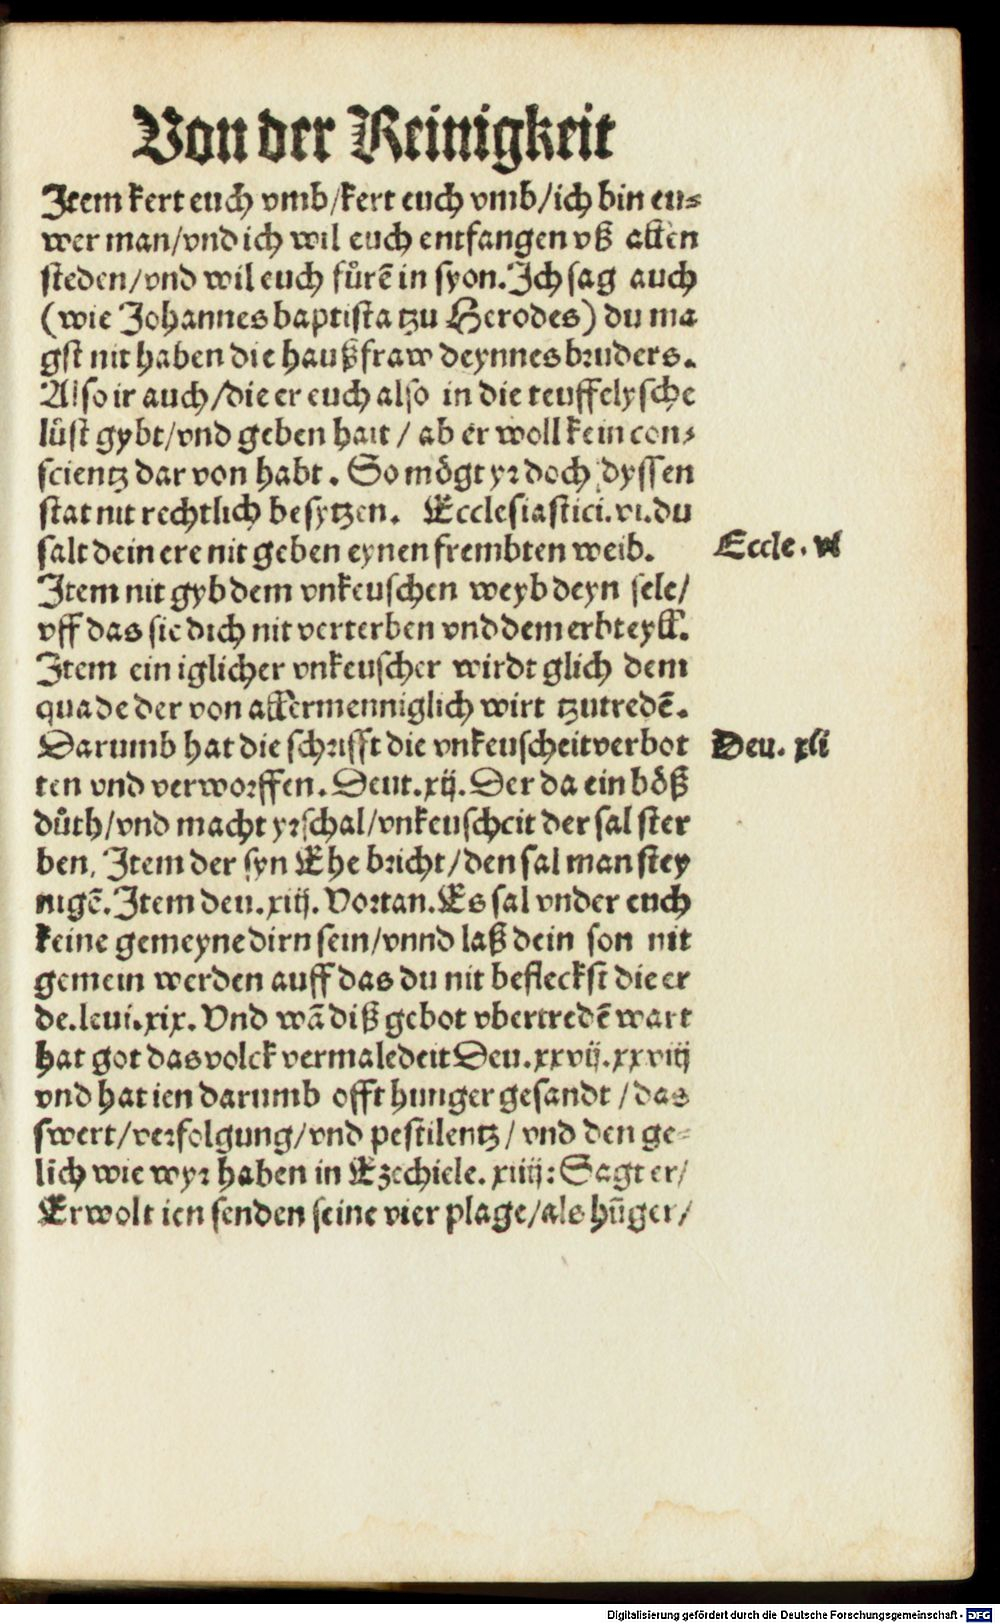 Von der Reinigkeit
Item kert euch vmb/kert euch vmb/ich bin eu⸗
wer man/vnd ich wil euch entfangen vß allen
steden/vnd wil euch fuͤrē in syon. Ich sag auch
(wie Johannes baptista tzu Herodes) du ma
gst nit haben die haußfraw deynnes bruders.
Also ir auch/die er euch also in die teuffelysche
luͤst gybt/vnd geben hait / ab er woll kein con⸗
scientz dar von habt. So moͤgt yr doch dyssen
stat nit rechtlich besytzen. Ecclesiastici.vi.du
salt dein ere nit geben eynen frembten weib.
Eccle. vl
Item nit gyb dem vnkeuschen weyb deyn sele/
vff das sie dich nit verterben vnd dem erbteyll.
Item ein iglicher vnkeuscher wirdt glich dem
quade der von allermenniglich wirt tzutredē.
Darumb hat die schrifft die vnkeuscheit verbot
Deu. xli
ten vnd verworffen. Deut.xij. Der da ein boͤß
duͤth/vnd macht yr schal/vnkeuscheit der sal ster
ben. Item der syn Ehe bricht/den sal man stey
nigē. Item deu.xiij. Vortan. Es sal vnder euch
keine gemeyne dirn sein/vnnd laß dein son nit
gemein werden auff das du nit befleckst die er
de.leui.xix. Vnd wā diß gebot vbertredē wart
hat got das volck vermaledeit Deu.xxvij.xxviij
vnd hat ien darumb offt hunger gesandt /das
swert/verfolgung/vnd pestilentz/ vnd den ge⸗
lich wie wyr haben in Ezechiele. xiiij: Sagt er/
Er wolt ien senden seine vier plage/als hūger/
Digitalisierung gefördert durch die Deutsche Forschungsgemeinschaft - DFG